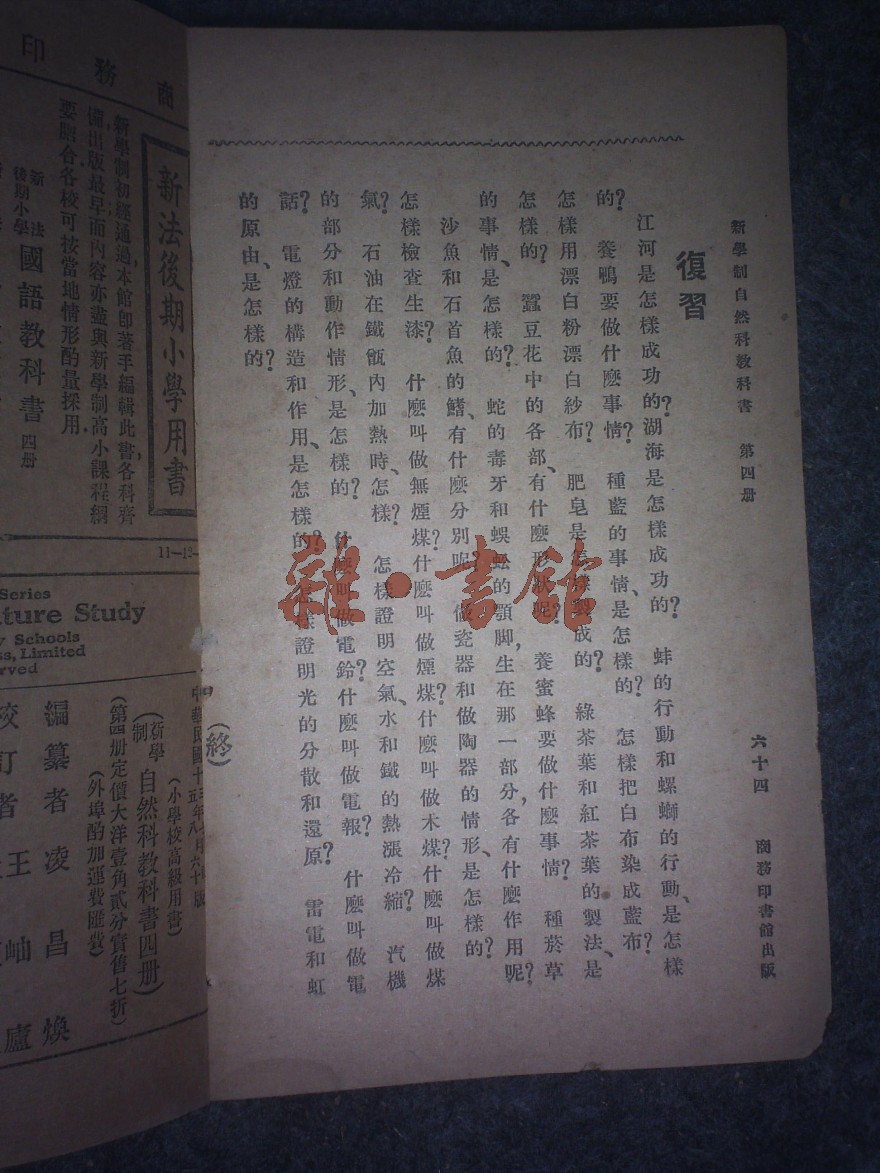 新學制自然科教科書 第四册
六十四 商務印書館出版
復習
江河是怎樣成功的?湖海是怎樣成功的? 蚌的行動和螺螄的行動、是怎樣
的? 養鴨要做什麽事情? 種藍的事情、是怎樣的? 怎樣把白布染成藍布?
怎樣用漂白粉漂白紗布? 肥皂是怎樣製成的? 綠茶葉和紅茶葉的製法、是
怎樣的? 蠶豆花中的各部、有什麽形狀呢? 養蜜蜂要做什麽事情? 種菸草
的事情、是怎樣的? 蛇的毒牙和蜈蚣的顎脚,生在那一部分,各有什麽作用呢?
沙魚和石首魚的鰭、有什麽分別呢? 做瓷器和做陶器的情形、是怎樣的?
怎樣檢查生漆? 什麽叫做無煙煤?什麽叫做煙煤?什麽叫做木煤?什麽叫做煤
氣? 石油在鐵甑內加熱時、怎樣? 怎樣證明空氣、水和鐵的熱漲冷縮? 汽機
的部分和動作情形、是怎樣的? 什麽叫做電鈴?什麽叫做電報? 什麽叫做電
話? 電燈的構造和作用、是怎樣的? 怎樣證明光的分散和還原? 雷電和虹
的原由、是怎樣的?
(終)
雜·書館
商務印
新法後期小學用書
新學制初經通過本館卽著手編輯此書各科齊
備出版最早而內容亦盡與新學制高小課程綱
要脗合各校可按當地情形酌量採用
新法後期小學 國語教科書 四册
11—12—
Series
ture Study
y Schools
ss, Limited
rved
中華民國十
(小學校高級用書)
(新學制 自然科教科書四册)
(第四册定價大洋壹角貳分實售七折)
(外埠酌加運費匯費)
編纂者 凌昌煥
校訂者 王岫廬